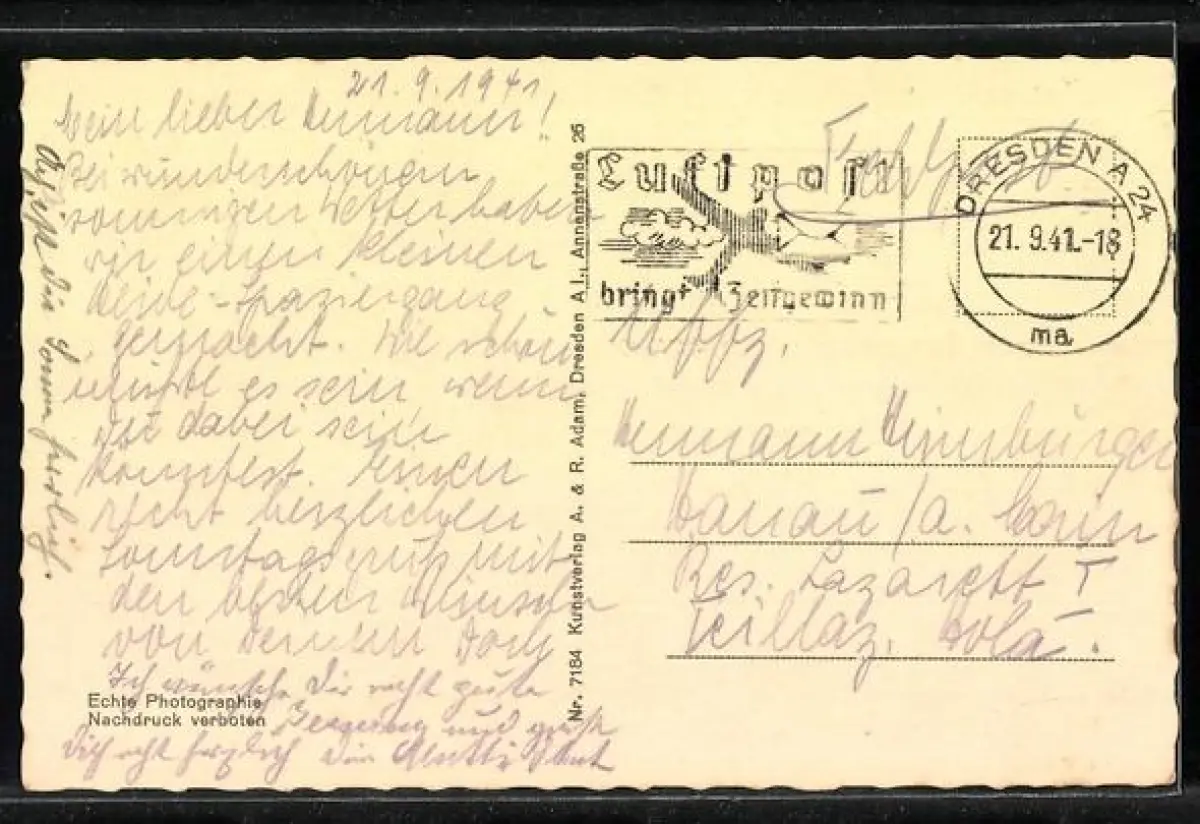 21. 9. 1941
Mein lieber Hermann!
Bei wunderschönen
sonnigen Wetter haben
wir einen kleinen
Heide-Spaziergang
gemacht. Wie schön
würde es sein wenn
Du dabei sein
konntest. Einen
recht herzlichen
Sonntagsgruß mit
den besten Wünschen
von Deinem
Ich wünsche Dir recht gute
und grüße
Dich recht herzlich Dein
die Sonne
Echte Photographie
Nachdruck verboten
Nr. 7184 Kunstverlag A. & R. Adam, Dresden A.I., Annenstraße 25
Luftpost
bringt Zeitgewinn
DRESDEN A 24
21. 9.41.-18
ma
Uffz.
Hermann
Hanau / a. Main
Res. Lazarett I
Teillaz.